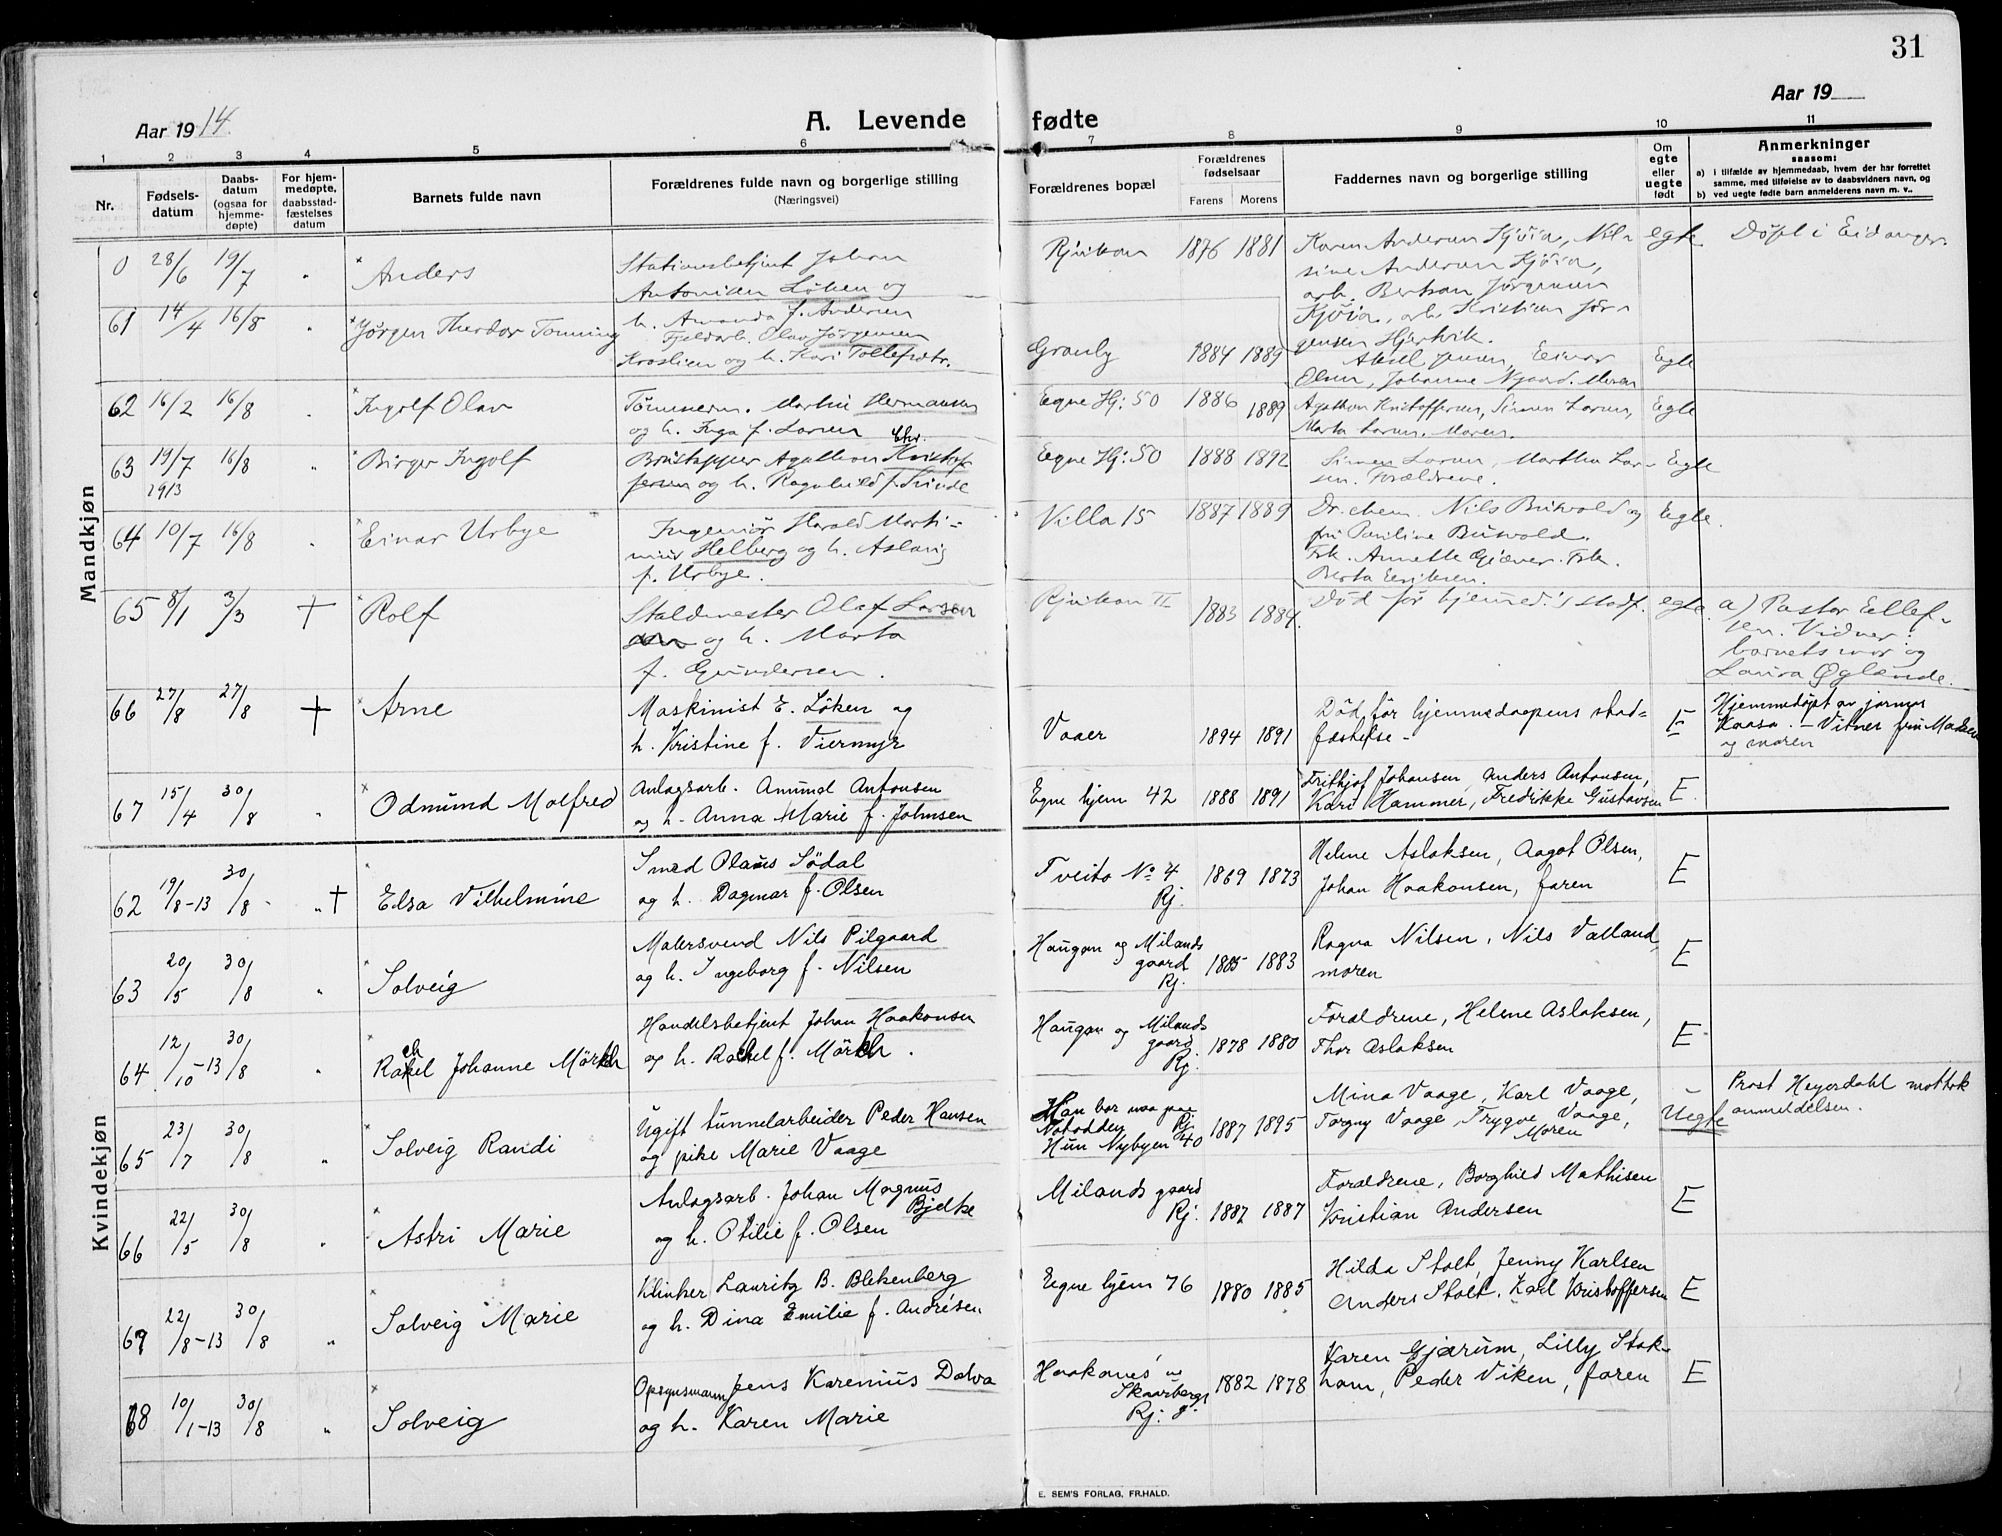 31
Aar 1914.
A. Levende fødte
Aar 19
1 2 3 4 5 6 7 8 9 10 11
Nr.
Fødsels-
datum
Daabs-
datum
(ogsaa for
hjemme-
døpte)
For hjem-
medøpte,
daabsstad-
fæstelses
datum
Barnets fulde navn
Forældrenes fulde navn og borgerlige stilling
(Næringsvei)
Forældrenes bopæl
Forældrenes
fødselsaar
Farens Morens
Faddernes navn og borgerlige stilling
Om
egte
eller
uegte
født
Anmerkninger
saasom:
a) i tilfælde av hjemmedaab, hvem der har forrettet
samme, med tilføielse av to daabsvidners navn, og
b) ved uegte fødte barn anmelderens navn m. v..
Mandkjøn
0 28/6 19/7 " Anders
Stationsbetjent Johan
Antonisen Löken og
h. Amanda f. Andersen
Rjukan 1876 1881
Karen Andersen Kjöia, Nil-
sine Andersen Kjöia,
arb. Bertran Jörgensen
Kjöia, arb. Kristian Jör-
gensen Hjertvik.
egte
Döpt i Eidanger.
61 14/4 16/8 " Jörgen Theodor Tonning
Fjeldarb. Olav Jörgensen
Kroslien og h. Kari Tollefsdtr.
Granby 1884 1889
Aksel Jensen, Einar
Olsen, Johanne Nygaard. Moren
Egte
62 16/2 16/8 " Ingolf Olav
Tömmerm. Martin Hermansen
og h. Inga f. Larsen
Egne Hj: 50 1886 1889
Agathon Kristoffersen, Simen Larsen,
Marta Larsen. Moren.
Egte
63 19/7 1913 16/8 " Birger Ingolf
Brustapper Agathon Chr. Kristof-
fersen og h. Ragnhild f. Trinde
Egne Hj: 50 1888 1892
Simen Larsen, Martha Lar-
sen. Forældrene.
Egte
64 10/7 16/8 " Einar Urbye
Ingeniör Harald Marti-
nius Helberg og h. Aslaug
f. Urbye.
Villa 15 1887 1889
Dr. chem. Nils Buvold og
fru Pauline Buvold.
Frk. Annette Gjæver. Frk.
Berta Eeriksen.
Egte.
65 8/1 3/3 † Rolf
Staldmester Olaf Larsen
og h. Marta
f. Gundersen.
Rjukan II 1883 1884.
Död för hjemmed.'s stadf.
egte.
a) Pastor Ellef-
sen. Vidner:
barnets mor og
Laura Öglænde.
66 27/8 27/8 † Arne
Maskinist E. Löken og
h. Kristine f. Viermyr
Vaaer 1894 1891
Död för hjemmedaapens stad-
fæstelse -
E
Hjemmedöpt av jormor
Kaasa. - Vitner fru Madsen
og moren
67 15/4 30/8 " Odmund Malfred
Anlagsarb. Amund Antonsen
og h. Anna Marie f. Johnsen
Egne hjem 42 1888 1891
Frithjof Johansen, Anders Antonsen,
Kari Hammer, Fredrikke Gustavsen
E.
Kvindekjøn
62 19/8-13 30/8 - " † Elsa Vilhelmine
Smed Olaus Södal
og h. Dagmar f. Olsen
Tveito No 4
Rj. 1869 1873
Helene Aslaksen, Aagot Olsen,
Johan Haakonsen, faren
E
63 20/5 30/8 " Solveig
Malersvend Nils Pilgaard
og h. Ingeborg f. Nilsen
Haugan og Milands
gaard
Rj. 1885 1883
Ragna Nilsen, Nils Vatland,
moren
E
64 12/10-13 30/8 " Rachel Johanne Mörch
Handelsbetjent Johan Haakonsen
og h. Rachel f. Mörch.
Haugan og Milands
gaard
Rj. 1878 1880
Forældrene, Helene Aslaksen,
Thor Aslaksen
E
65 23/7 30/8 " Solveig Randi
Ugift tunnelarbeider Peder Hansen
og pike Marie Vaage
Han bor naa paa
Notodden Rj.
Hun Nybyen 40 1887 1895
Mina Vaage, Karl Vaage,
Torgny Vaage, Trygve Vaage,
Moren
Uegte
Prost Heyerdahl mottok
anmeldelsen.
66 22/5 30/8 " Astri Marie
Anlagsarb. Johan Magnus
Bjelke
og h. Otilie f. Olsen
Milands gaard
Rj. 1882 1887
Forældrene, Borghild Mathisen
Kristian Andersen
E
67 22/8-13 30/8 " Solveig Marie
Klinker Lauritz B. Blekenberg
og h. Dina Emilie f. Andrésen
Egne hjem 76 1880 1885
Hilda Stolt, Jenny Karlsen
Anders Stolt, Karl Kristoffersen
E
68 10/1-13 30/8 " Solveig
Opsynsmann Jens Karenius Dalva
og h. Karen Marie
Haakanes
Skaarberg
Rj: g. 1882 1878
Karen Gjærum, Lilly Stok-
ham, Peder Viken, faren
E
E. SEM'S FORLAG, FR.HALD.